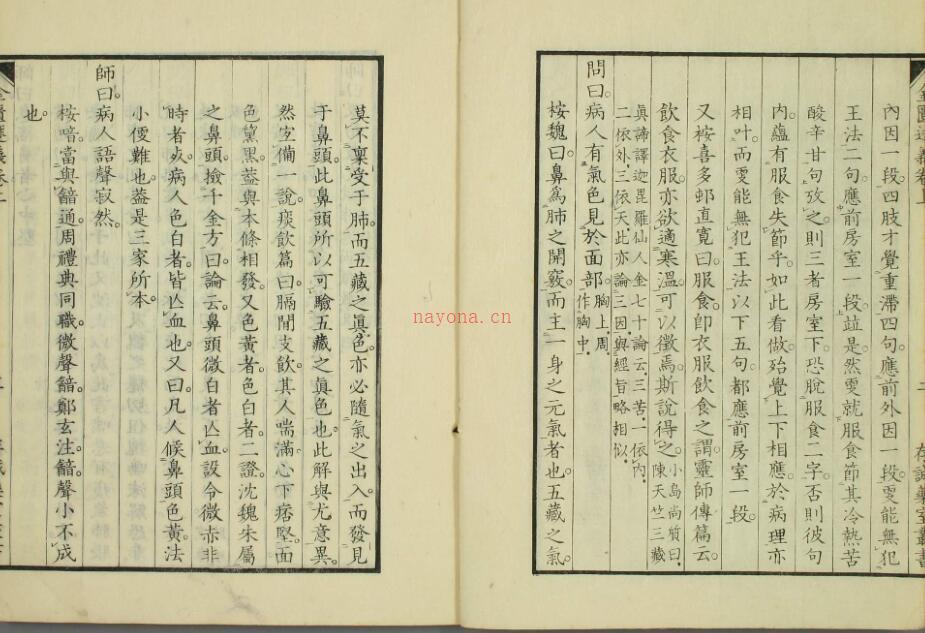 內因一段四肢才覺重滯四句。應前外因一段。更能無犯
王法二句。應前房室一段竝是。然更就服食節其冷熱苦
酸辛甘句攷之。則三者房室下恐脫服食二字。否則彼句
內。蘊有服食失節乎。如此看做。殆覺上下相應。於病理亦
相叶。而更能無犯王法以下五句。都應前房室一段。
又桉喜多邨直寬曰。服食。卽衣服飲食之謂。靈師傳篇云。
飲食衣服。亦欲適寒溫。可以徵焉。斯說得之。小島尚質曰。陳天竺三藏
眞諦譯迦毘羅仙人金七十論云。三苦。一依內。二依外。三依天。此亦論三因。與經旨略相似。
問曰。病人有氣色見於面部。胸上。周作胸中。
桉魏曰。鼻爲肺之開竅。而主一身之元氣者也。五藏之氣。
莫不稟受于肺。而五藏之眞色。亦必隨氣之出入。而發見
于鼻頭。此鼻頭所以可驗五藏之眞色也。此解與尤意異。
然字備一說。痰飲篇曰。膈閒支飲。其人喘滿。心下痞堅。面
色黧黑。蓋與本條相發。又色黃者。色白者。二證。沈魏朱屬
之鼻頭。撿千金方曰。論云。鼻頭微白者亾血。設令微赤非
時者。死。病人色白者。皆亾血也。又曰。凡人候鼻頭色黃。法
小便難也。蓋是三家所本。
師曰。病人語聲寂然。
桉喑。當與韽通。周禮典同職。微聲韽。鄭玄注。韽。聲小不成
也。
nayona.cn